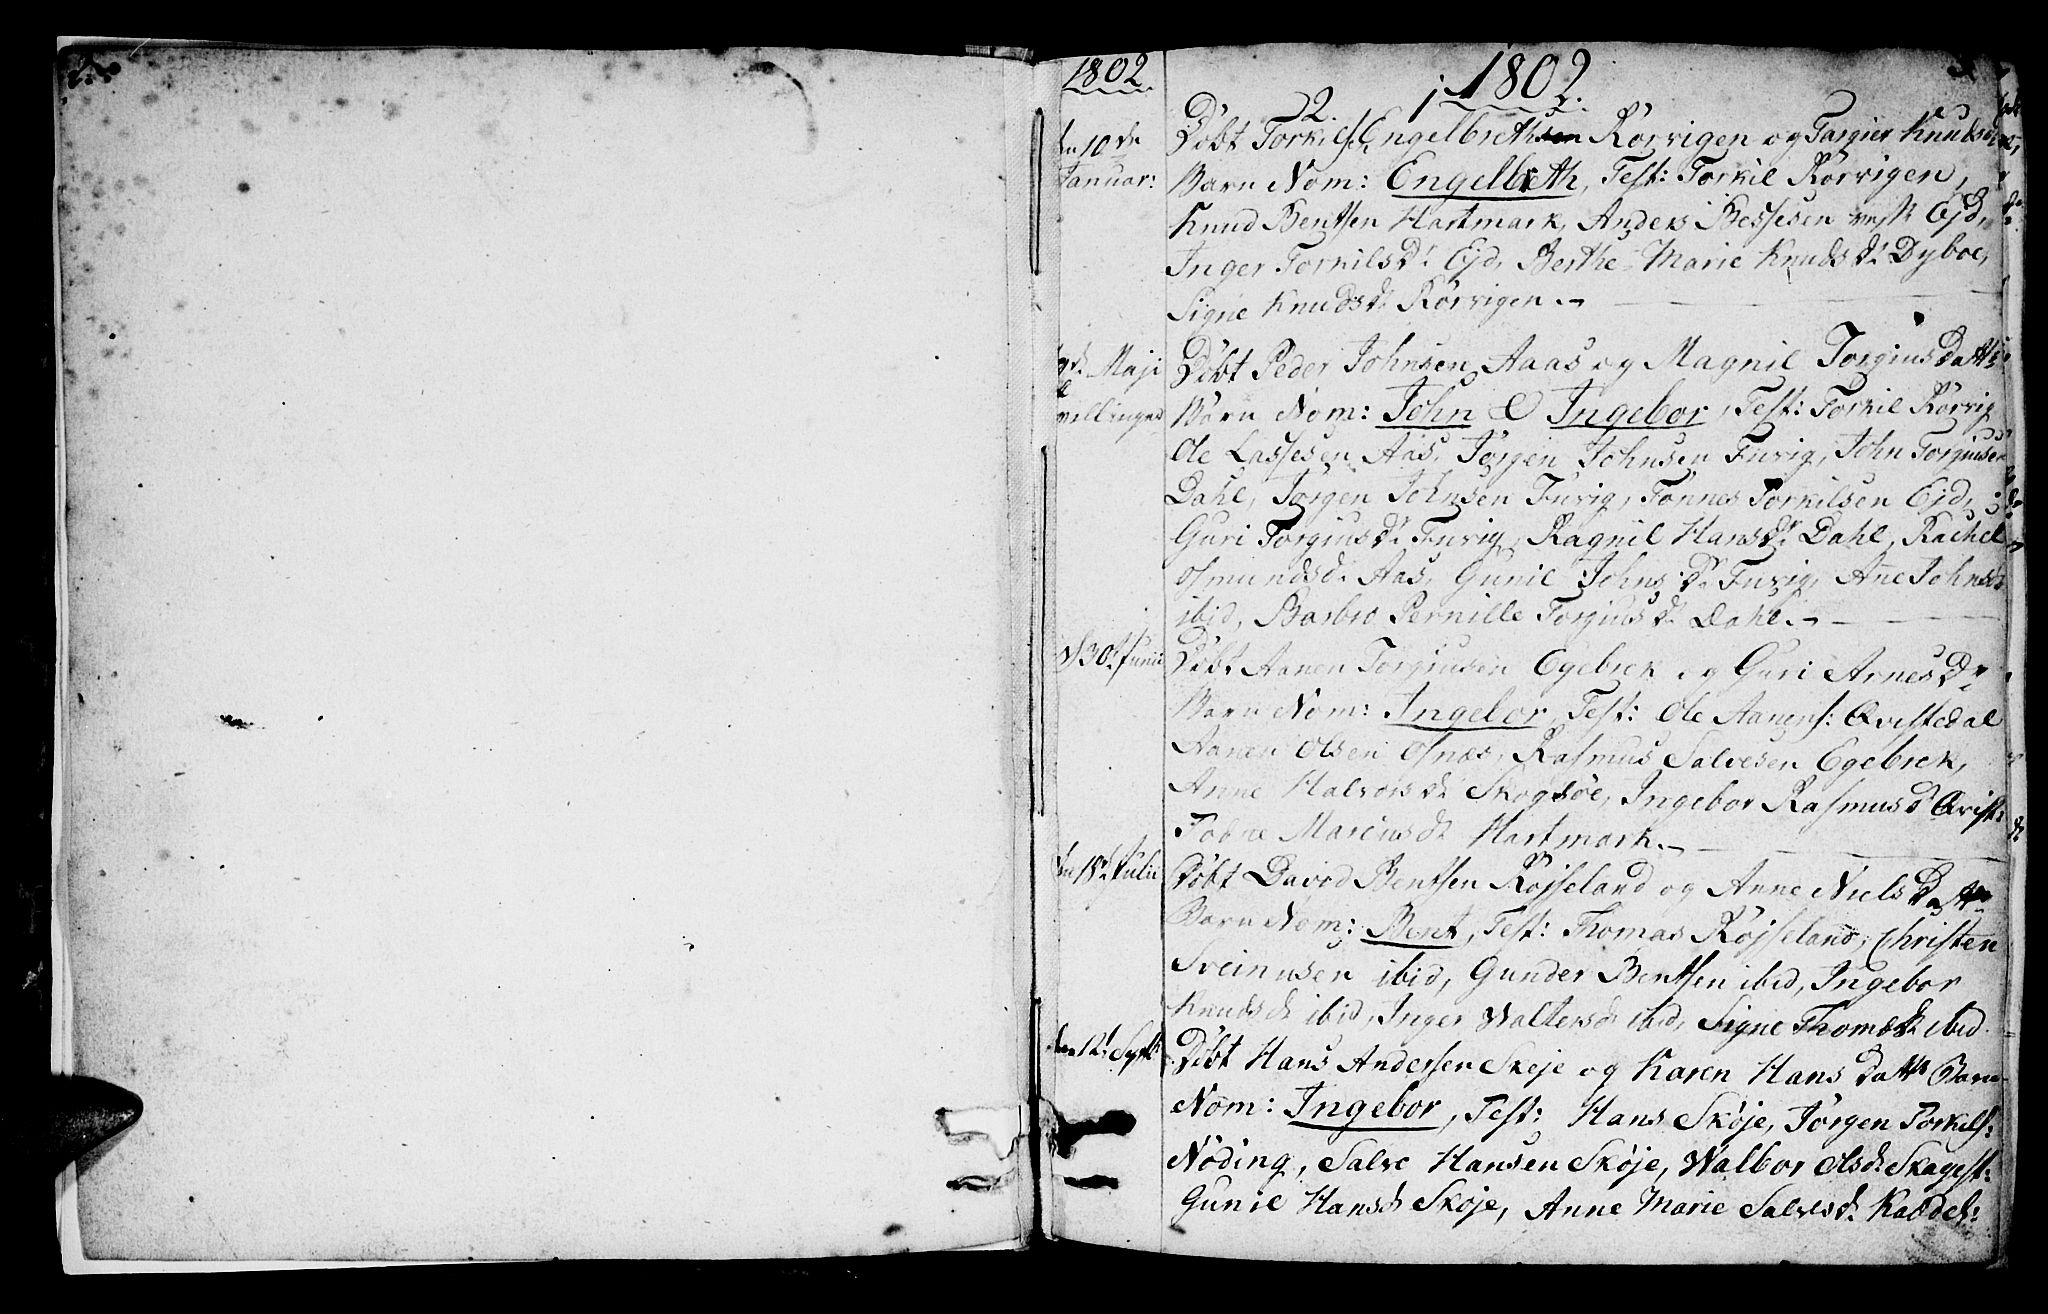 1802
1802.
2.
10de Januar:
Døbt Torkils. Engelbrethsen Rørvigen og Targier Knudsdr
Barn Nom: Engelbreth, Test: Torkil Rørvigen,
Knud Bentsen Hartmark, Anders Bessesen Ejd,
Inger Torkilsdr Ejd, Berthe-Marie Knudsdr Dyboe,
Signe Knudsdr Rørvigen.-
9de Maji
Døbt Peder Johnsen Aaas og Magnil Torgiusdattr
Børn Nom: John & Ingebor, Test: Torkil Rørvig
Ole Lassesen Aas, Jørgen Johnsen Furig, John Torgiusen
Dahl, Jørgen Johnsen Furig, Tønnes Torkilsen Ejd,
Guri Torgiusdr Furig, Ragnil Hansdr Dahl, Rachel
Osmundsdr Aas, Gunil Johnsdr Furig, Ane Johnsdr
ibid, Barbro Pernille Torgiusdr Dahl.-
30te Junii
Døbt Aanen Torgiusen Egebrek og Guri Arnesdr
Barn Nom: Ingebor, Test: Ole Aanens: Qvistedal
Aanen Olsen Osnæs, Rasmus Salvesen Egebrek,
Anne Halvorsdr Skogsøe, Ingebor Rasmusdr Qvist:
Tobne Marcusdr Hartmark.-
18de Julii
Døbt David Bentsen Røjseland og Anne Nielsdattr
Barn Nom: Bent, Test: Thomas Røjseland, Christen
Sveinusen ibid, Gunder Bentsen ibid, Ingebor
Knudsdr ibid, Inger Waltersdr ibid, Signe Thomædr ibid.
den 12te Septb
Døbt Hans Andersen Skeje og Karen Hansdattr Barn
Nom: Ingebor, Test: Hans Skøje, Jørgen Torkils:
Nøding, Salve Hansen Skøje, Walbor Olsdr Skagest:
Gunil Hansdr Skøje, Anne Marie Salvesdr Kaddel: